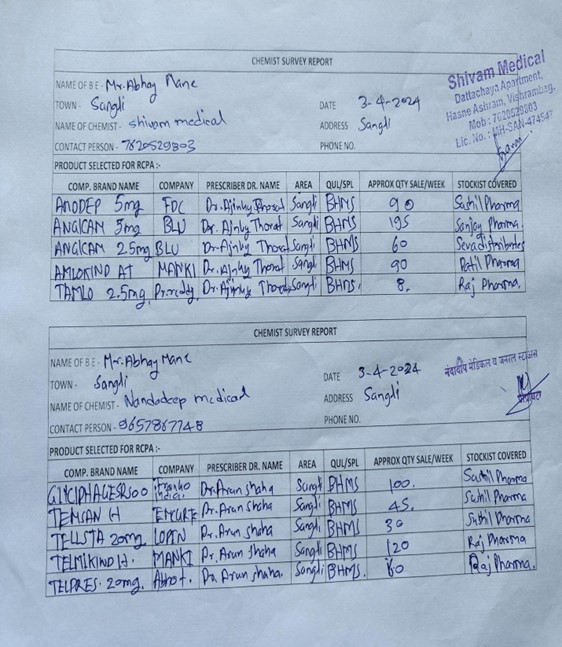 CHEMIST SURVEY REPORT
NAME OF B E - Mr. Abhay Mane
TOWN - Sangli
DATE 3-4-2024
NAME OF CHEMIST - shivam medical
ADDRESS Sangli
CONTACT PERSON - 7620529803
PHONE NO.
Shivam Medical
Dattachaya Apartment,
Hasne Ashram, Vishrambag,
Mob : 7620529803
Lic. No. : MH-SAN-474547
PRODUCT SELECTED FOR RCPA :-
COMP. BRAND NAME COMPANY PRESCRIBER DR. NAME AREA QUL/SPL APPROX QTY SALE/WEEK STOCKIST COVERED
ANODEP 5mg FDC Dr. Ajinky Thorat Sangli BHMS 90 Sushil Pharma
ANGICAM 5mg BLU Dr. Ajinky Thorat Sangli BHMS 195 Sanjay Pharma.
ANGICAM 2.5mg BLU Dr. Ajinky Thorat Sangli BHMS 60 Seva distributes
AMLOKIND AT MANKI Dr. Ajinky Thorat Sangli BHMS 90 Patil Pharma
TAMLO 2.5mg, Dr. Ajinky Thorat Sangli BHMS. 8. Raj Pharma.
CHEMIST SURVEY REPORT
NAME OF B E - Mr. Abhay Mane
TOWN - Sangli
DATE 3-4-2024
NAME OF CHEMIST - Nandadeep medical
ADDRESS Sangli
CONTACT PERSON - 9657867748
PHONE NO.
नंदादीप मेडिकल व जनरल स्टोअर्स
PRODUCT SELECTED FOR RCPA :-
COMP. BRAND NAME COMPANY PRESCRIBER DR. NAME AREA QUL/SPL APPROX QTY SALE/WEEK STOCKIST COVERED
GLYCIPHAGESR500 Franko India. Dr. Arun shaha Sangli BHMS 100. Sushil Pharma
TEMSAN H EMCURE Dr. Arun Shaha Sangli BHMS 45. Sushil Pharma
TELLSTA 20mg LUPIN Dr. Arun Shaha Sangli BHMS 30 Sushil Pharma
TELMIKIND H. MANKI Dr. Arun Shaha Sangli BHMS 120 Raj Pharma
TELPRES. 20mg. Abbot. Dr. Arun shaha. Sangli BHMS. 60 Raj Pharma.